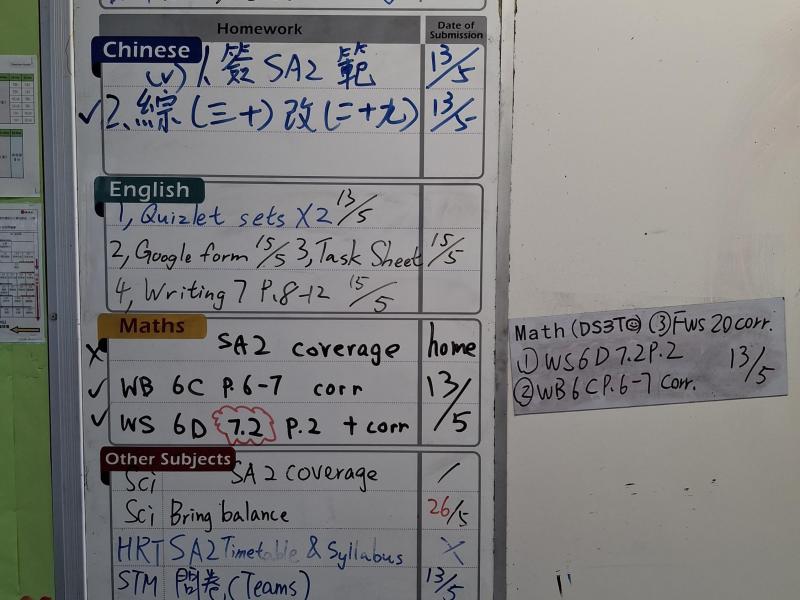 Homework
Date of Submission
Chinese
(✓) 1. 簽 SA2 範 13/5
✓ 2. 綜(三十)改(二十九) 13/5
English
1, Quizlet sets X2 13/5
2, Google form 15/5 3, Task Sheet 15/5
4, Writing 7 P.8-12 15/5
Maths
X SA2 coverage home
✓ WB 6C P.6-7 corr 13/5
✓ WS 6D 7.2 P.2 + corr
Other Subjects
Sci SA2 coverage /
Sci Bring balance 26/5
HRT SA2 Timetable & Syllabus X
STM 問卷 (Teams) 13/5
Math (DS3T©) ③ FWS 20 corr.
① WS6D 7.2 P.2 13/5
② WB6C P.6-7 corr.